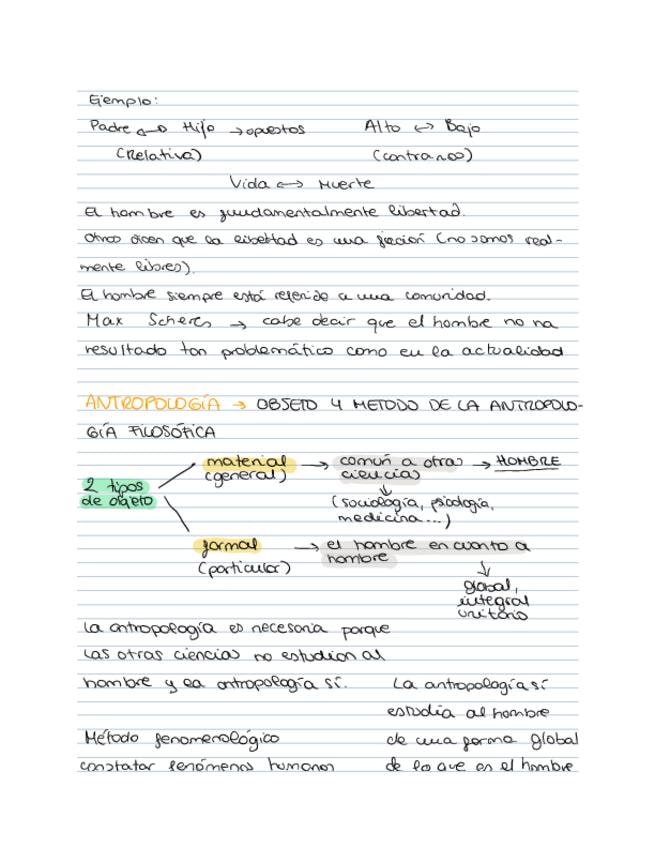 Ejemplo:
Padre ↔ Hijo → opuestos Alto ↔ Bajo
(Relativa) (contrarios)
Vida ↔ Muerte
El hombre es fundamentalmente libertad.
Otros dicen que la libertad es una ficción (no somos real-
mente libres).
El hombre siempre está referido a una comunidad.
Max Scheres → cabe decir que el hombre no ha
resultado tan problemático como en la actualidad
ANTROPOLOGÍA → OBJETO Y METODO DE LA ANTROPOLO-
GÍA FILOSÓFICA
material → común a otras → HOMBRE
(general) ciencias
2 tipos
de objeto
(sociología, psicología,
medicina...)
formal → el hombre en cuanto a
(particular) hombre
global,
integral
unitario
La antropología es necesaria porque
las otras ciencias no estudian al
hombre y la antropología sí. La antropología sí
estudia al hombre
Método fenomenológico de una forma global
constatar fenómenos humanos de lo que es el hombre